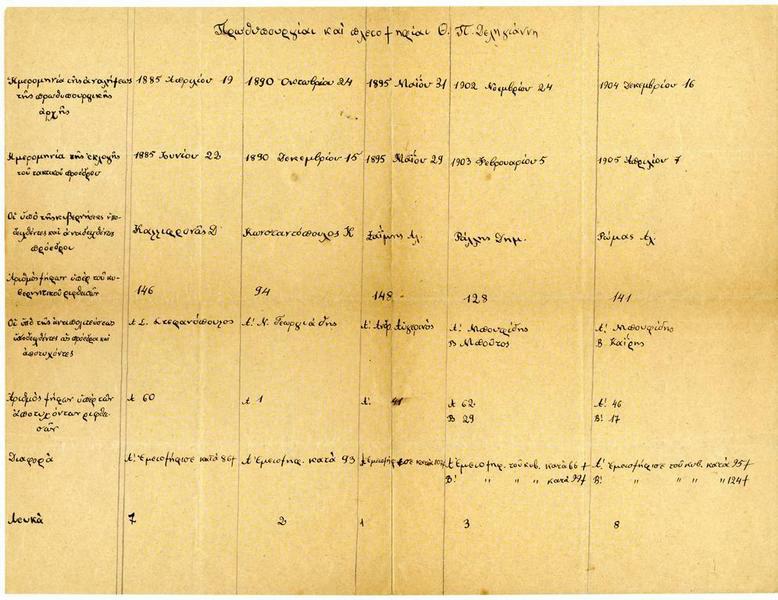 Πρωθυπουργίαι καὶ πλειοψηφίαι Θ. Π. Δεληγιάννη
Ἡμερομηνία τῆς ἀναλήψεως τῆς πρωθυπουργικῆς ἀρχῆς
1885 Ἀπριλίου 19
1890 Ὀκτωβρίου 24
1895 Μαΐου 31
1902 Νοεμβρίου 24
1904 Δεκεμβρίου 16
Ἡμερομηνία τῆς ἐκλογῆς
τοῦ τακτικοῦ προέδρου
1885 Ἰουνίου 22
1890 Δεκεμβρίου 15
1895 Μαΐου 29
1903 Φεβρουαρίου 5
1905 Ἀπριλίου 7
Οἱ ὑπὸ τῆς κυβερνήσεως ὑπο-
δειχθέντες καὶ ἀναδειχθέντες
πρόεδροι
Καλλιφρονᾶς Δ
Κωνσταντόπουλος Κ
Ζαΐμης Αλ.
Ράλλης Δημ.
Ρώμας Αλ.
Ἀριθμὸς ψήφων ὑπὲρ τοῦ κυ-
βερνητικοῦ ριφθεισῶν
146
94
148
128
141
Οἱ ὑπὸ τῆς ἀντιπολιτεύσεως
ὑποδειχθέντες ὡς πρόεδροι καὶ
ἀποτυχόντες
Α Σ. Στεφανόπουλος
Α! Ν. Γεωργιάδης
Α! Ἀνδρ. Αὐγερινός
Α! Μπουφίδης
Β Μπούτος
Α! Μπουφίδης
Β Καΐρης
Ἀριθμὸς ψήφων ὑπὲρ τῶν
ἀποτυχόντων ριφθει-
σῶν
Α 60
Α 1
Α! 41
Α 62
Β 29
Α! 46
Β! 17
Διαφορὰ
Α! Ἐμειοψήφισε κατὰ 86
Α Ἐμειοψηφ. κατὰ 93
Α Ἐμειοψήφισε κατὰ 107
Α Ἐμειοψηφ. τοῦ κυβ. κατὰ 66
Β! " " " κατὰ 99
Α! Ἐμειοψήφισε τοῦ κυβ. κατὰ 95
Β! " " " " 124
Λευκὰ
7
2
1
3
8